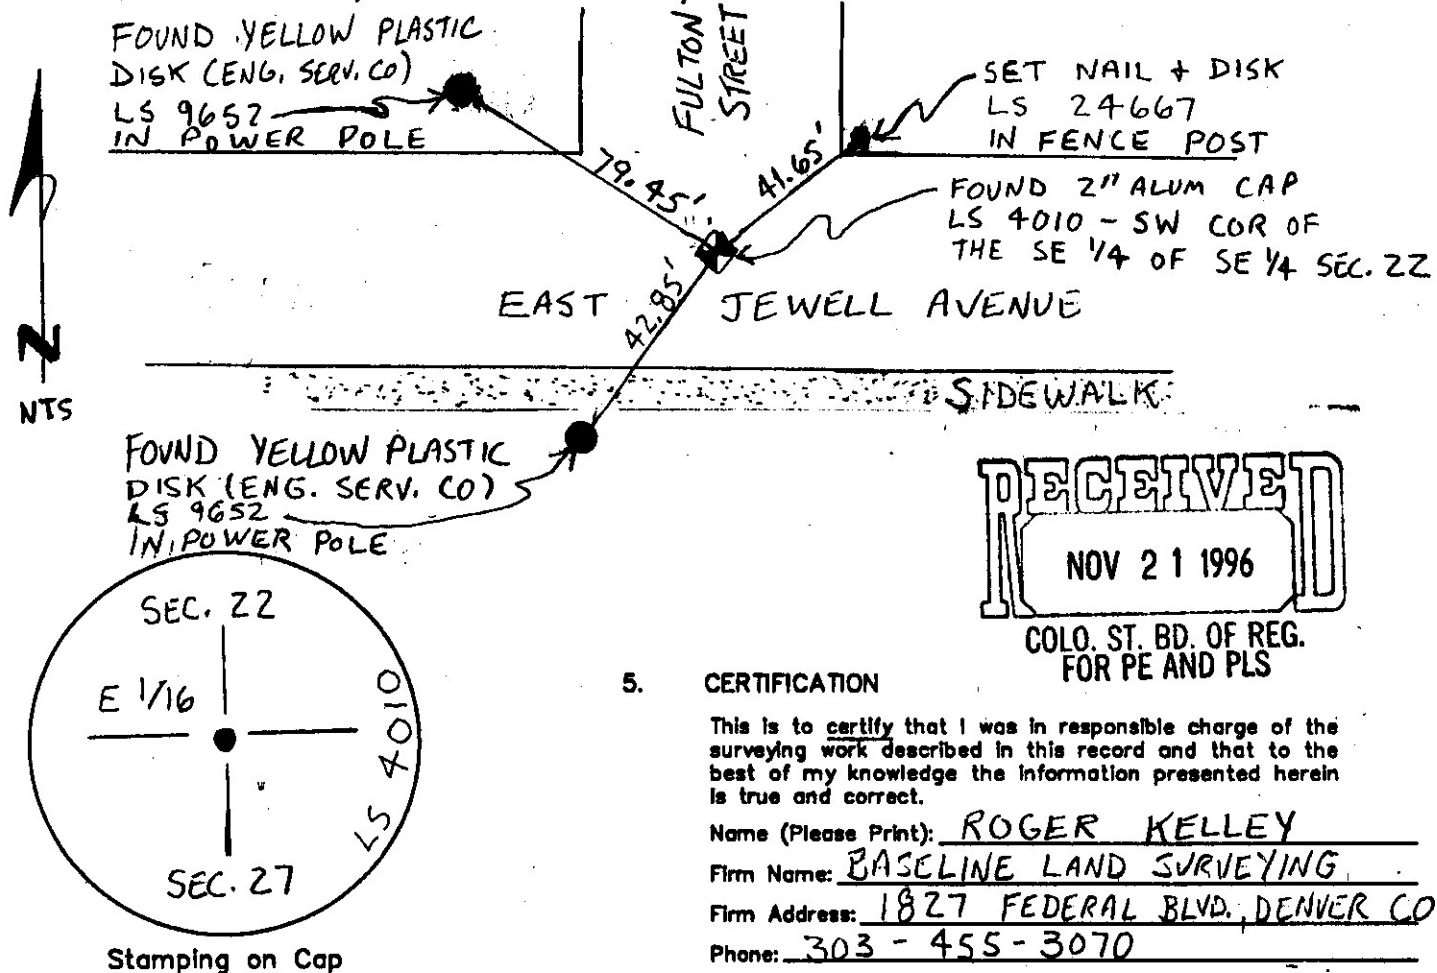 FOUND YELLOW PLASTIC
DISK (ENG. SERV. CO)
LS 9652
IN POWER POLE
FULTON
STREET
SET NAIL + DISK
LS 24667
IN FENCE POST
79.45'
41.65'
FOUND 2" ALUM CAP
LS 4010 - SW COR OF
THE SE 1/4 OF SE 1/4 SEC. 22
42.85'
EAST JEWELL AVENUE
N
NTS
SIDEWALK
FOUND YELLOW PLASTIC
DISK (ENG. SERV. CO)
LS 9652
IN POWER POLE
RECEIVED
NOV 21 1996
COLO. ST. BD. OF REG.
FOR PE AND PLS
SEC. 22
E 1/16
LS 4010
SEC. 27
Stamping on Cap
5. CERTIFICATION
This is to certify that I was in responsible charge of the
surveying work described in this record and that to the
best of my knowledge the information presented herein
is true and correct.
Name (Please Print): ROGER KELLEY
Firm Name: BASELINE LAND SURVEYING
Firm Address: 1827 FEDERAL BLVD., DENVER CO
Phone: 303-455-3070